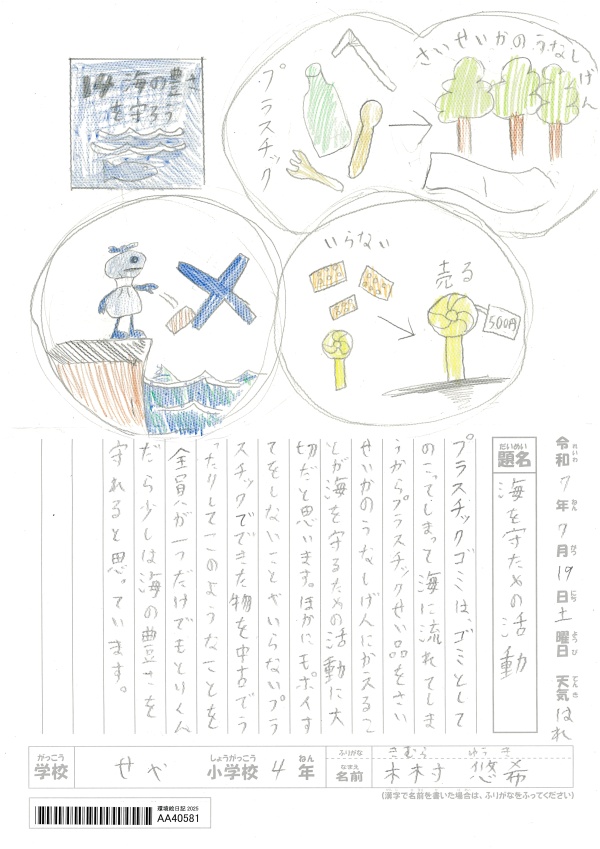 14 海の豊さ
を守ろう
プラスチック
さいせいかのうなしげん
いらない
売る
500円
令和7年7月19日土曜日 天気はれ
れいわ ねん がつ にち ようび てんき
だいめい
題名
海を守ための活動
プラスチックゴミは、ゴミとして
のこってしまって海に流れてしま
うからプラスチックせい品をさい
せいかのうなしげんにかえるこ
とが海を守るための活動に大
切だと思います。ほかにもポイす
てをしないことやいらないプラ
スチックでできた物を中古でう
ったりしてこのようなことを
全員が一つだけでもとりくん
だら少しは海の豊さを
守れると思っています。
がっこう しょうがっこう ねん
学校 せや 小学校 4年
ふりがな きむら ゆうき
なまえ
名前 木村 悠希
(漢字で名前を書いた場合は、ふりがなをふってください)
環境絵日記2025
AA40581